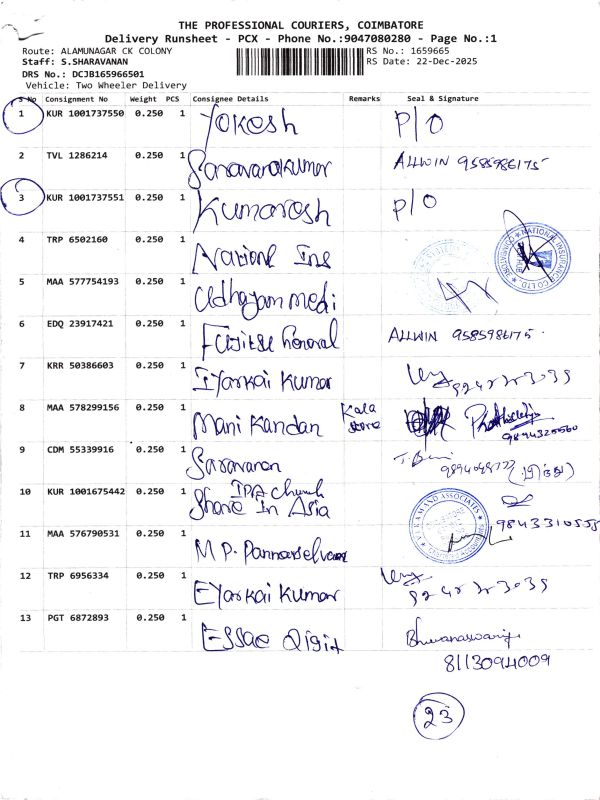 THE PROFESSIONAL COURIERS, COIMBATORE
Delivery Runsheet - PCX - Phone No.:9047080280 - Page No.:1
Route: ALAMUNAGAR CK COLONY RS No.: 1659665
Staff: S.SHARAVANAN RS Date: 22-Dec-2025
DRS No.: DCJB165966501
Vehicle: Two Wheeler Delivery
S No Consignment No Weight PCS Consignee Details Remarks Seal & Signature
1 KUR 1001737550 0.250 1 Yokesh P/O
2 TVL 1286214 0.250 1 Saravanakumar ALLWIN 9585986175
3 KUR 1001737551 0.250 1 Kumaresh P/O
4 TRP 6502160 0.250 1 National Ins
NATIONAL INSURANCE CO LTD
5 MAA 577754193 0.250 1 Udhayam medi
6 EDQ 23917421 0.250 1 Fujitsu General ALLWIN 9585986175
7 KRR 50386603 0.250 1 Iyarkai Kumar
8 MAA 578299156 0.250 1 Mani Kandan Kala store
9 CDM 55339916 0.250 1 Saravanan
10 KUR 1001675442 0.250 1 IPA church
Share In Asia 9843310555
11 MAA 576790531 0.250 1 M P. Pannerselvam
12 TRP 6956334 0.250 1 Eyarkai Kumar
13 PGT 6872893 0.250 1 Essae Digit Bhuvaneswari
8113094009
23